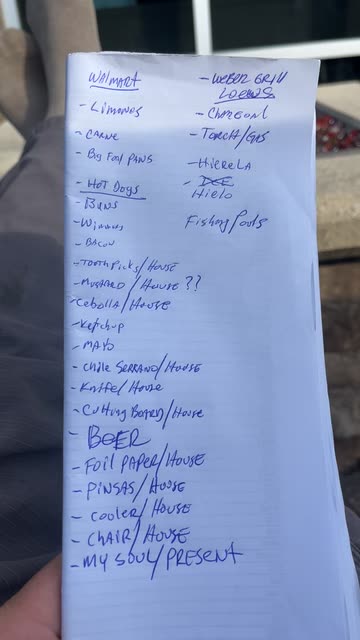 WALMART
- LIMONES
- CARNE
- Big Foil PANS
- HOT DOGS
- BUNS
- Winnies
- BACON
- TOOTHPICKS/HOUSE
- MUSTARD/HOUSE ??
- CEBOLLA/HOUSE
- Ketchup
- MAYO
- CHILE SERRANO/HOUSE
- KNIFE/HOUSE
- CUTTING BOARD/HOUSE
- BEER
- FOIL PAPER/HOUSE
- PINSAS/HOUSE
- COOLER/HOUSE
- CHAIR/HOUSE
- MY SOUL/PRESENT
- WEBER GRILL
LOEWS
- CHARCOAL
- TORCH/GAS
- HIELERA
- ICE
HIELO
Fishing Pools